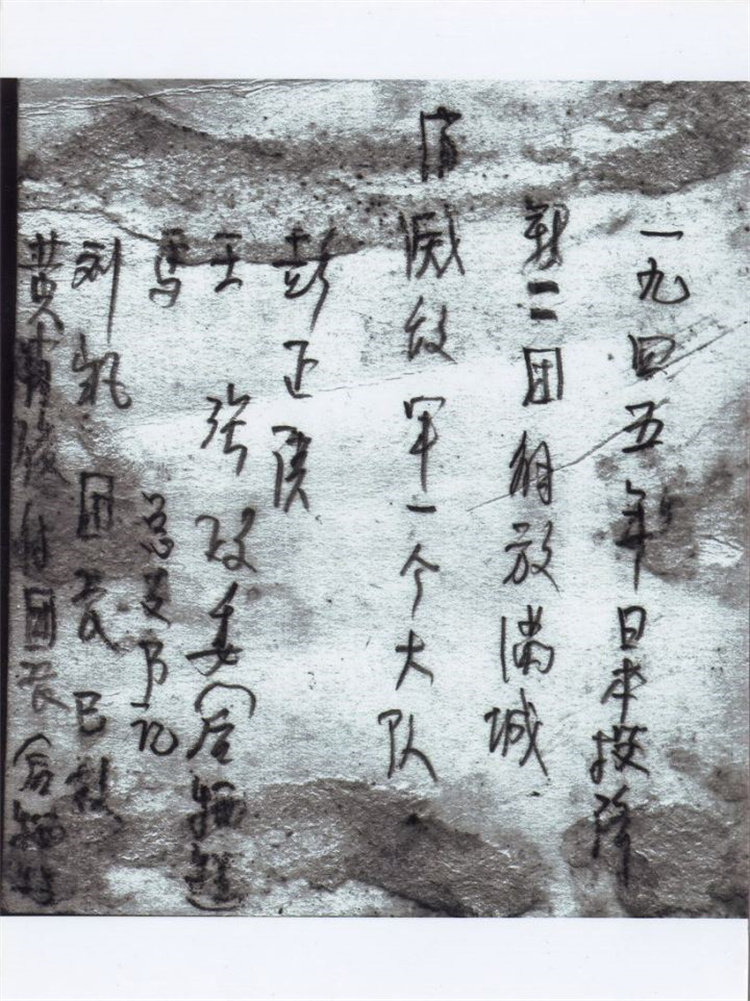 一九四五年日本投降
二团解放满城
滅敌军一个大队
彭正
王 张政委（后牺牲）
马 总支书记
刘凯 团长 已故
黄 付团长（后牺牲